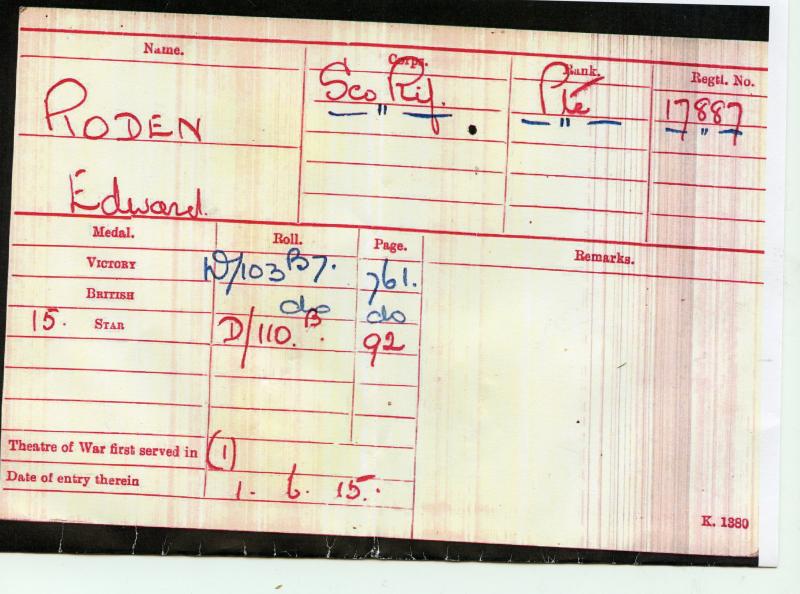 Name. Corps. Rank. Regtl. No.
RODEN Sco Rif. Pte 17887
" " "
Edward.
Medal. Roll. Page. Remarks.
VICTORY D/103 B7. 761.
BRITISH do do
15. STAR D/110.B 92
Theatre of War first served in (1)
Date of entry therein 1. 6. 15.
K. 1380